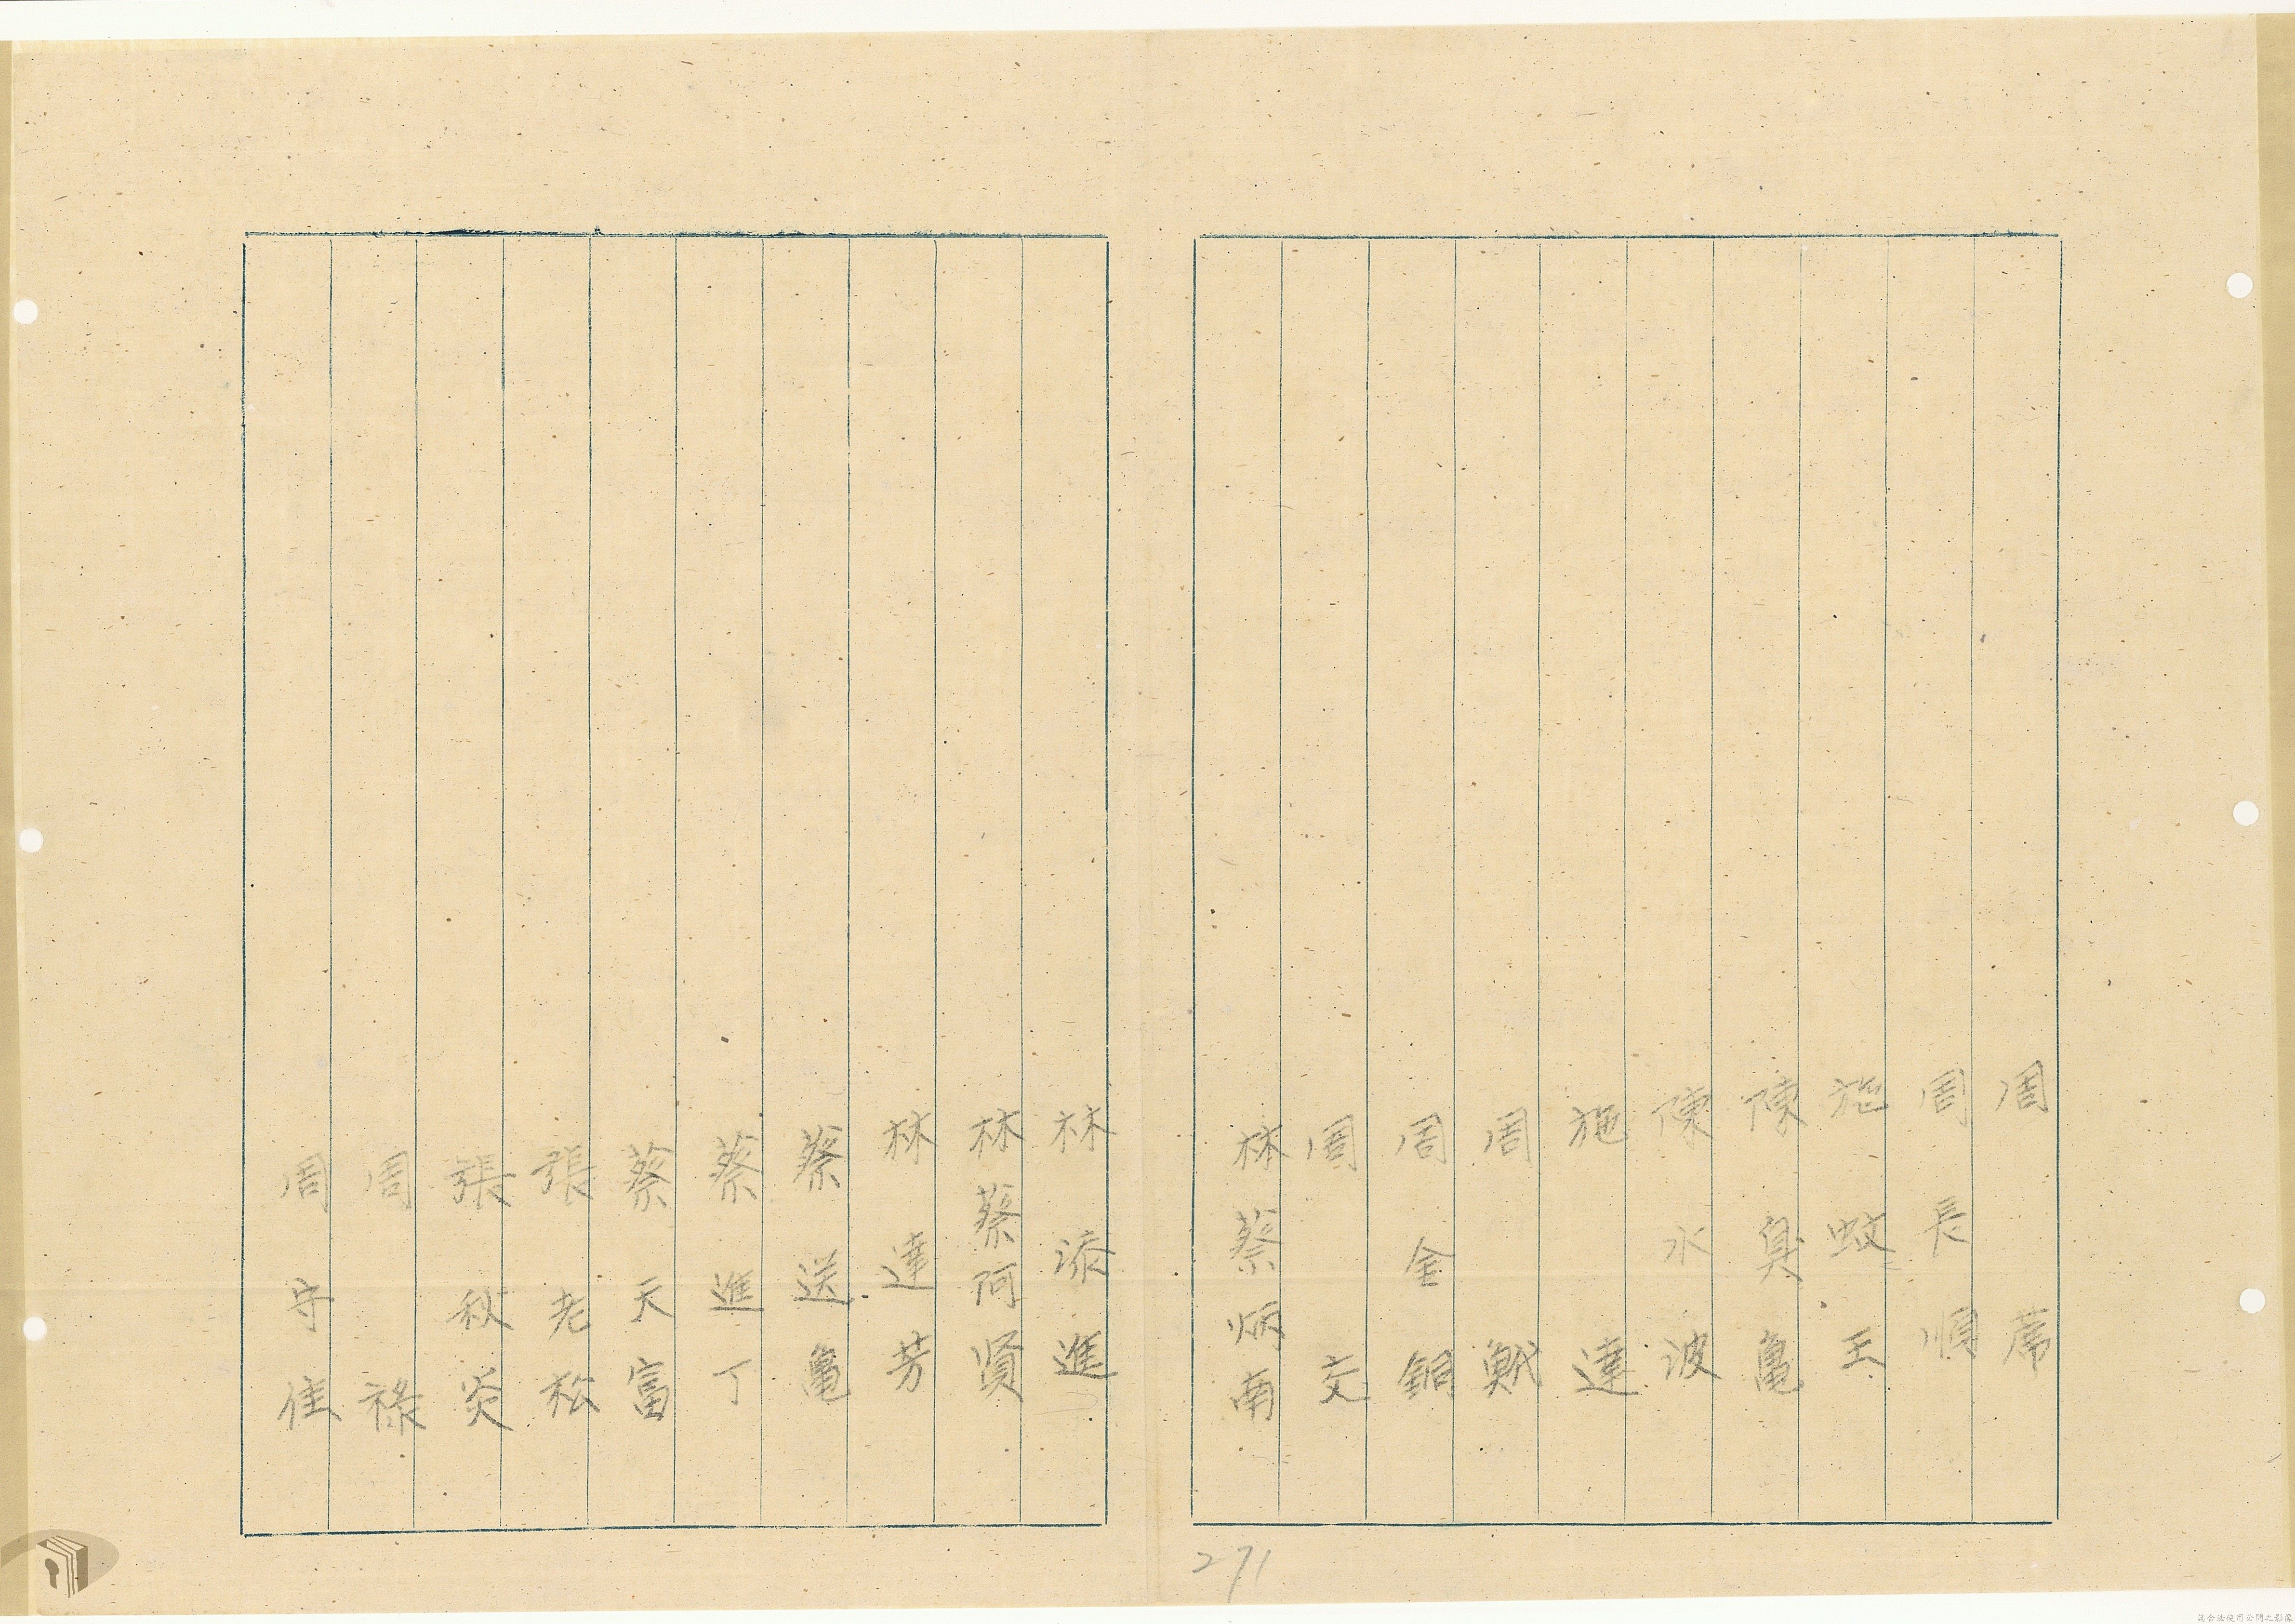 周　席
周長順
施蚊王
陳臭亀
陳水波
施　達
周　魷
周金銅
周　交
林蔡炳南
林添進
林蔡阿賢
林達芳
蔡送亀
蔡進丁
蔡天富
張老松
張秋炎
周　祿
周守佳
271
請合法使用公開之影像